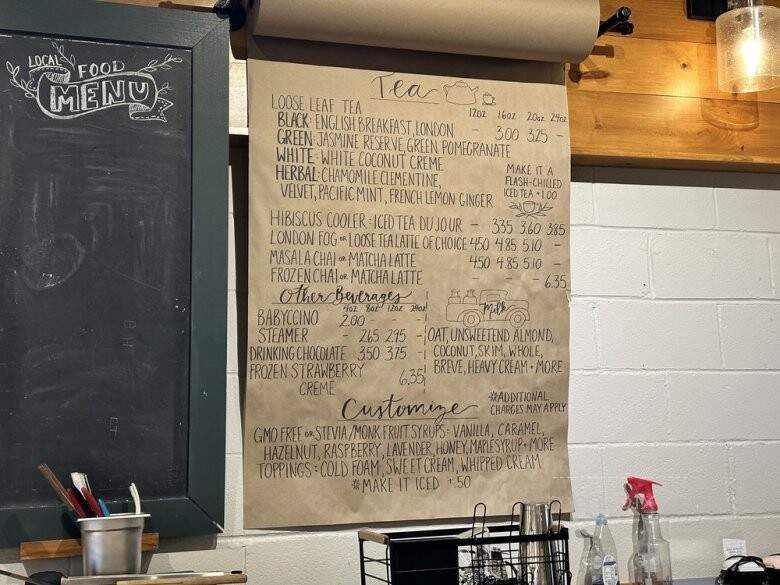 LOCAL FOOD
MENU
Tea
LOOSE LEAF TEA 12oz 16oz 20oz 24oz
BLACK: ENGLISH BREAKFAST, LONDON - 3.00 3.25 -
GREEN: JASMINE RESERVE, GREEN POMEGRANATE
WHITE: WHITE COCONUT CREME
HERBAL: CHAMOMILE CLEMENTINE,
VELVET, PACIFIC MINT, FRENCH LEMON GINGER
MAKE IT A
FLASH-CHILLED
ICED TEA +1.00
HIBISCUS COOLER: ICED TEA DU JOUR - 3.35 3.60 3.85
LONDON FOG OR LOOSE TEA LATTE OF CHOICE 4.50 4.85 5.10 -
MASALA CHAI OR MATCHA LATTE 4.50 4.85 5.10 -
FROZEN CHAI OR MATCHA LATTE - - - 6.35
Other Beverages
4oz 8oz 12oz 24oz
BABYCCINO 2.00 - - -
STEAMER - 2.65 2.95 -
DRINKING CHOCOLATE 3.50 3.75 -
FROZEN STRAWBERRY
CREME 6.35
Milk
OAT, UNSWEETEND ALMOND,
COCONUT, SKIM, WHOLE,
BREVE, HEAVY CREAM + MORE
Customize
*ADDITIONAL
CHARGES MAY APPLY
GMO FREE OR STEVIA/MONK FRUIT SYRUPS: VANILLA, CARAMEL,
HAZELNUT, RASPBERRY, LAVENDER, HONEY, MAPLE SYRUP + MORE
TOPPINGS: COLD FOAM, SWEET CREAM, WHIPPED CREAM
*MAKE IT ICED +.50